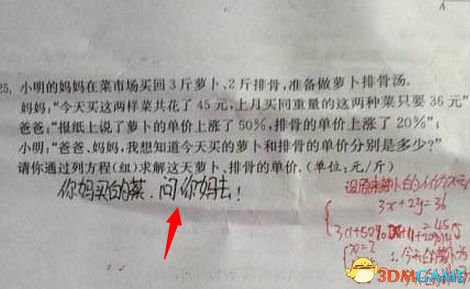 25. 小明的妈妈在菜市场买回3斤萝卜、2斤排骨,准备做萝卜排骨汤.
妈妈:“今天买这两样菜共花了45元,上月买同重量的这两种菜只要36元”
爸爸:“报纸上说了萝卜的单价上涨了50%,排骨的单价上涨了20%”;
小明:“爸爸、妈妈,我想知道今天买的萝卜和排骨的单价分别是多少?”
请你通过列方程(组)求解这天萝卜、排骨的单价.(单位:元/斤)
你妈买的菜.问你妈去!
3x+2y=36
3(1+50%)
=45
x=2
3DMGAME